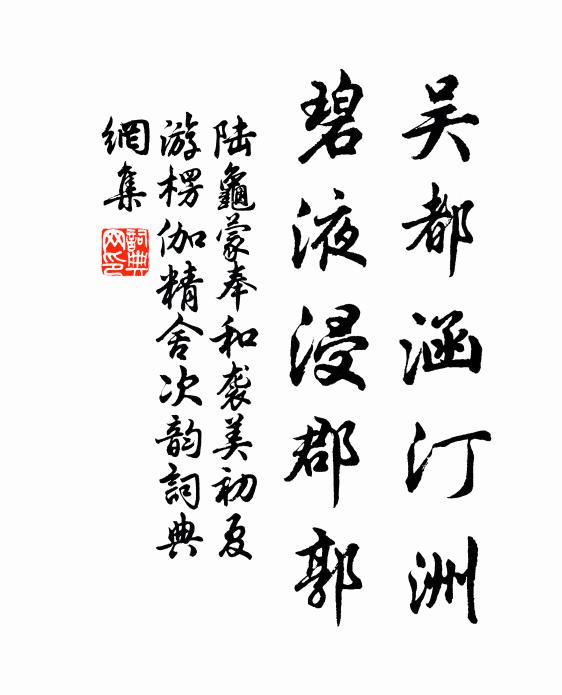 吴都涵汀洲
碧液浸郡郭
陆龜蒙奉和袭美初夏
游楞伽精舍次韵詞典
網集
詞典
网印